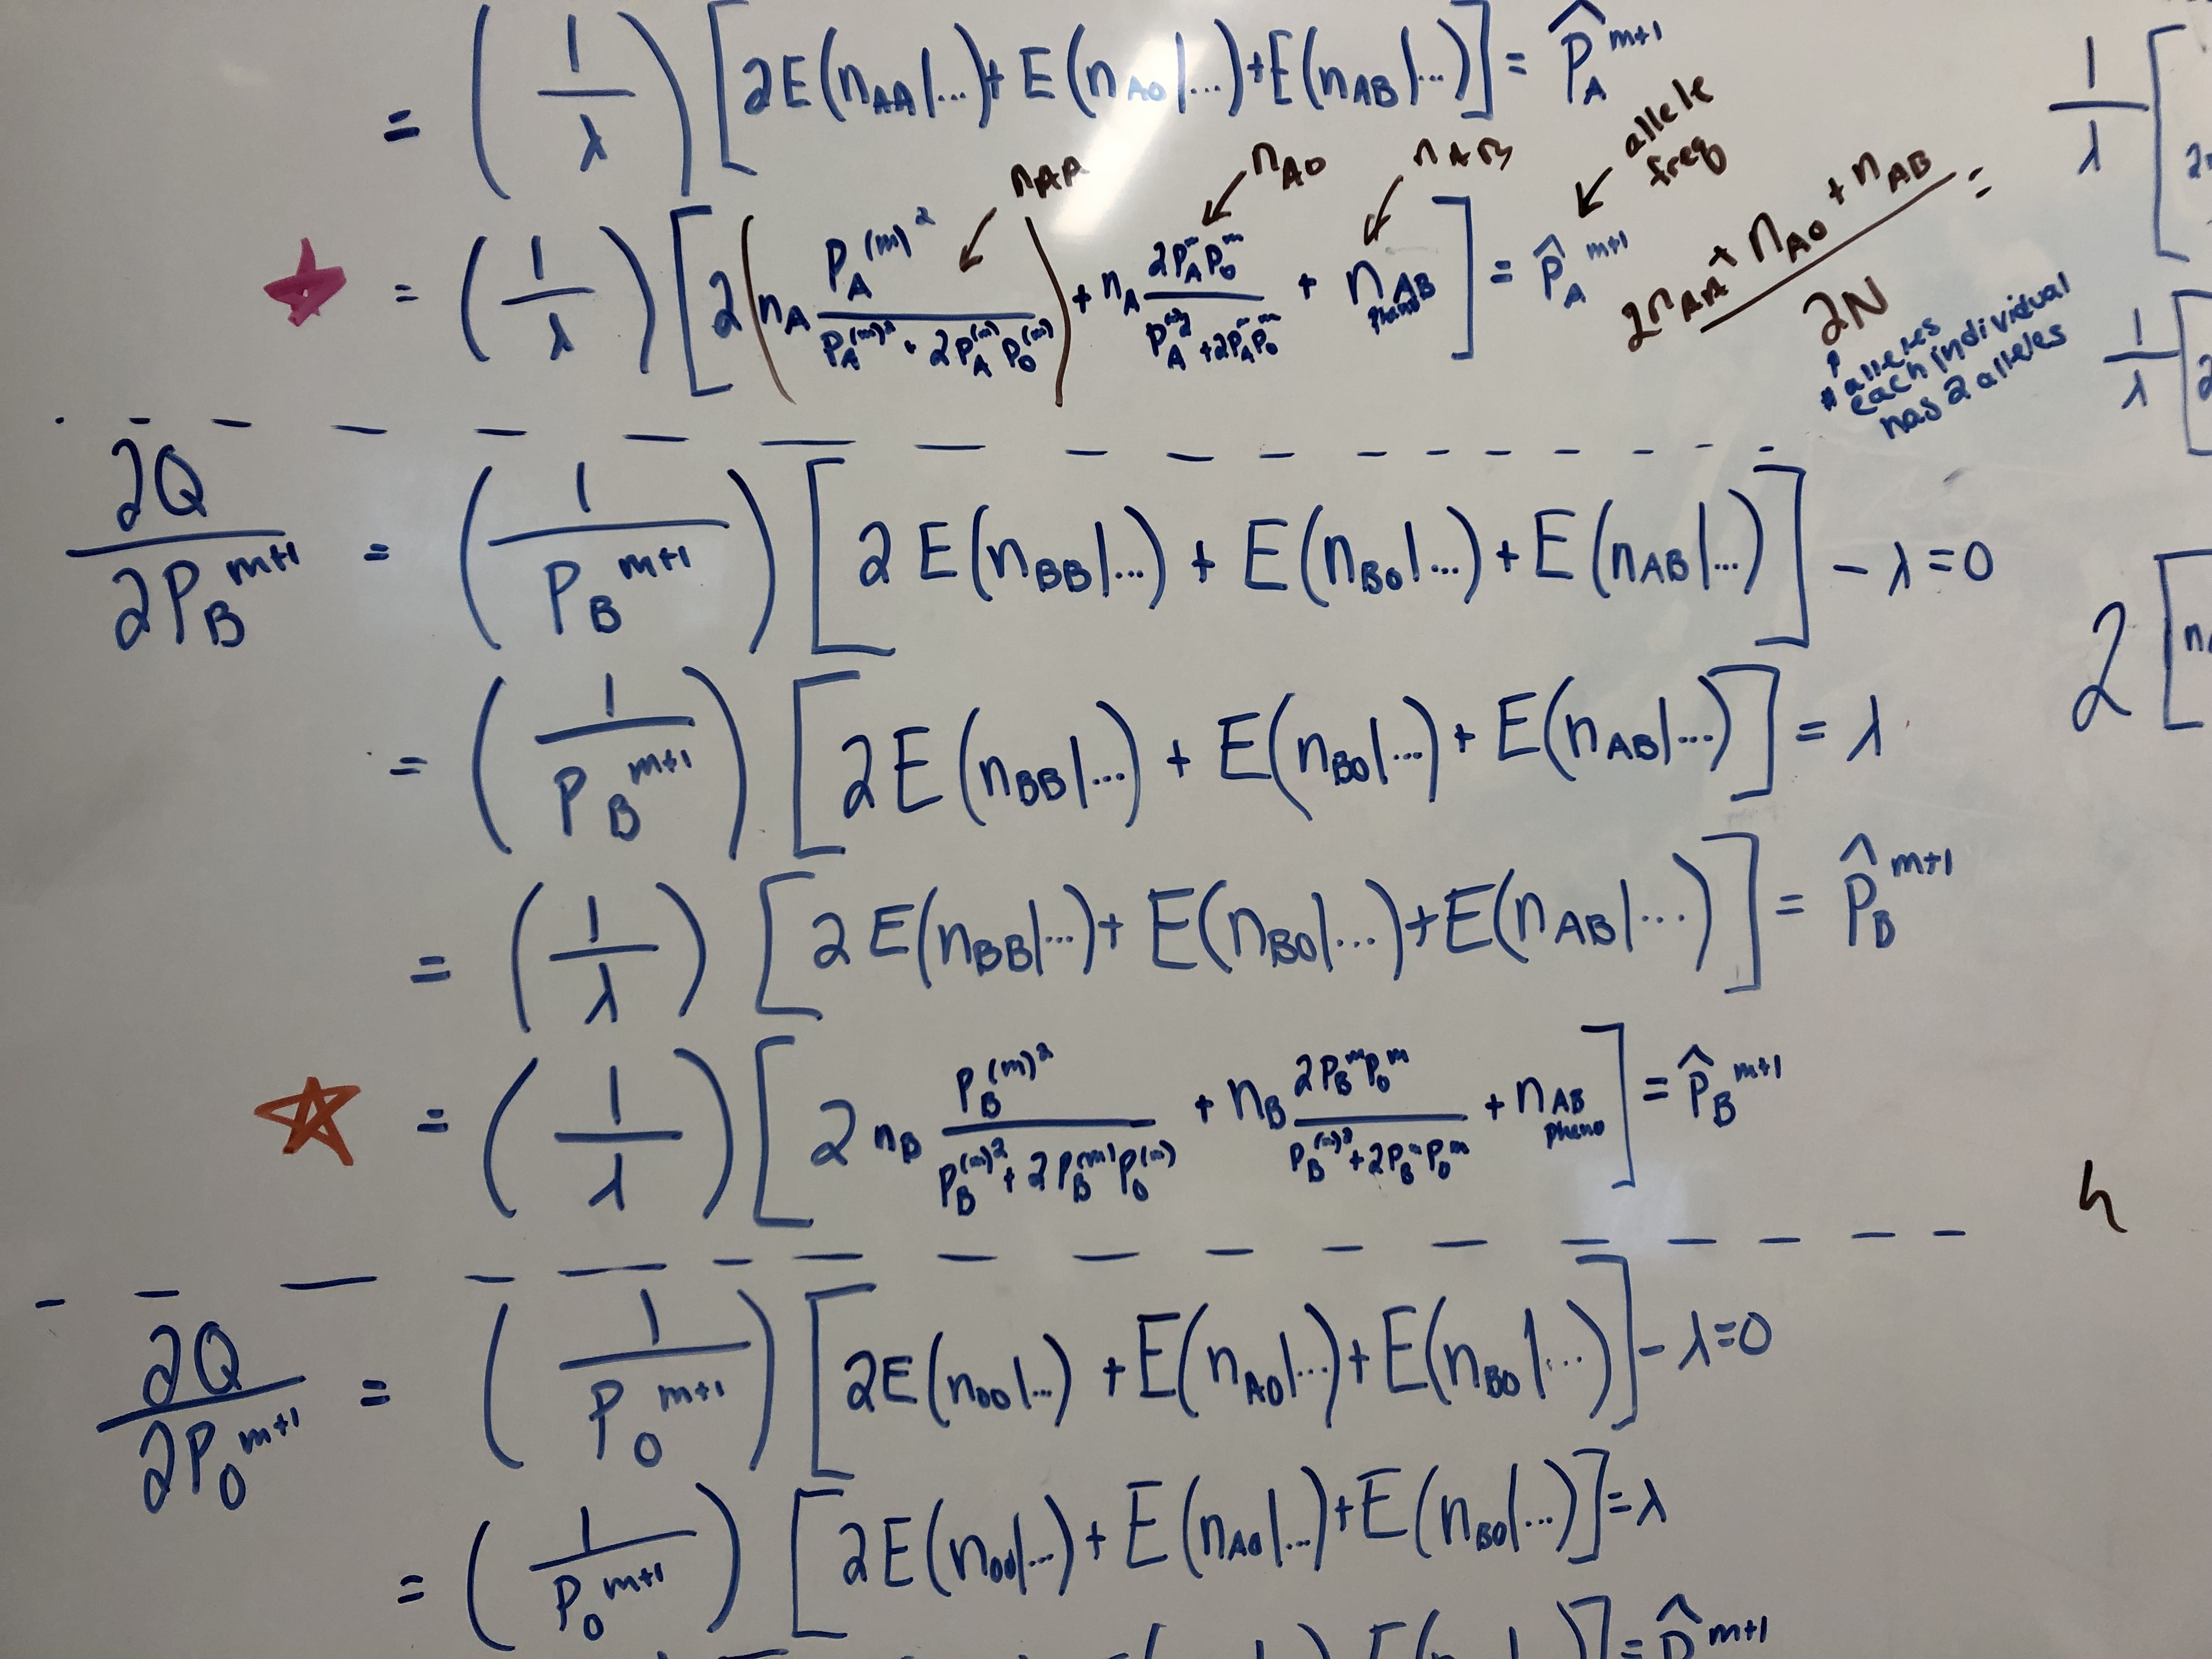 = (1/λ) [2E(n_AA|...) + E(n_AO|...) + E(n_AB|...)] = P̂_A^{m+1}
n_AA n_AO n_AB allele freq
= (1/λ) [2(n_A P_A^{(m)2} / (P_A^{(m)2} + 2P_A^{(m)}P_O^{(m)})) + n_A 2P_A^m P_O^m / (P_A^{(m)2} + 2P_A^m P_O^m) + n_AB pheno] = P̂_A^{m+1}
(2n_AA + n_AO + n_AB) / 2N =
# alleles
each individual
has 2 alleles
∂Q/∂P_B^{m+1} = (1/P_B^{m+1}) [2E(n_BB|...) + E(n_BO|...) + E(n_AB|...)] - λ = 0
= (1/P_B^{m+1}) [2E(n_BB|...) + E(n_BO|...) + E(n_AB|...)] = λ
= (1/λ) [2E(n_BB|...) + E(n_BO|...) + E(n_AB|...)] = P̂_B^{m+1}
= (1/λ) [2n_B P_B^{(m)2} / (P_B^{(m)2} + 2P_B^{(m)}P_O^{(m)}) + n_B 2P_B^m P_O^m / (P_B^{(m)2} + 2P_B^m P_O^m) + n_AB pheno] = P̂_B^{m+1}
∂Q/∂P_O^{m+1} = (1/P_O^{m+1}) [2E(n_OO|...) + E(n_AO|...) + E(n_BO|...)] - λ = 0
= (1/P_O^{m+1}) [2E(n_OO|...) + E(n_AO|...) + E(n_BO|...)] = λ
= P̂^{m+1}
1/λ [2
1/λ [2
2 [n